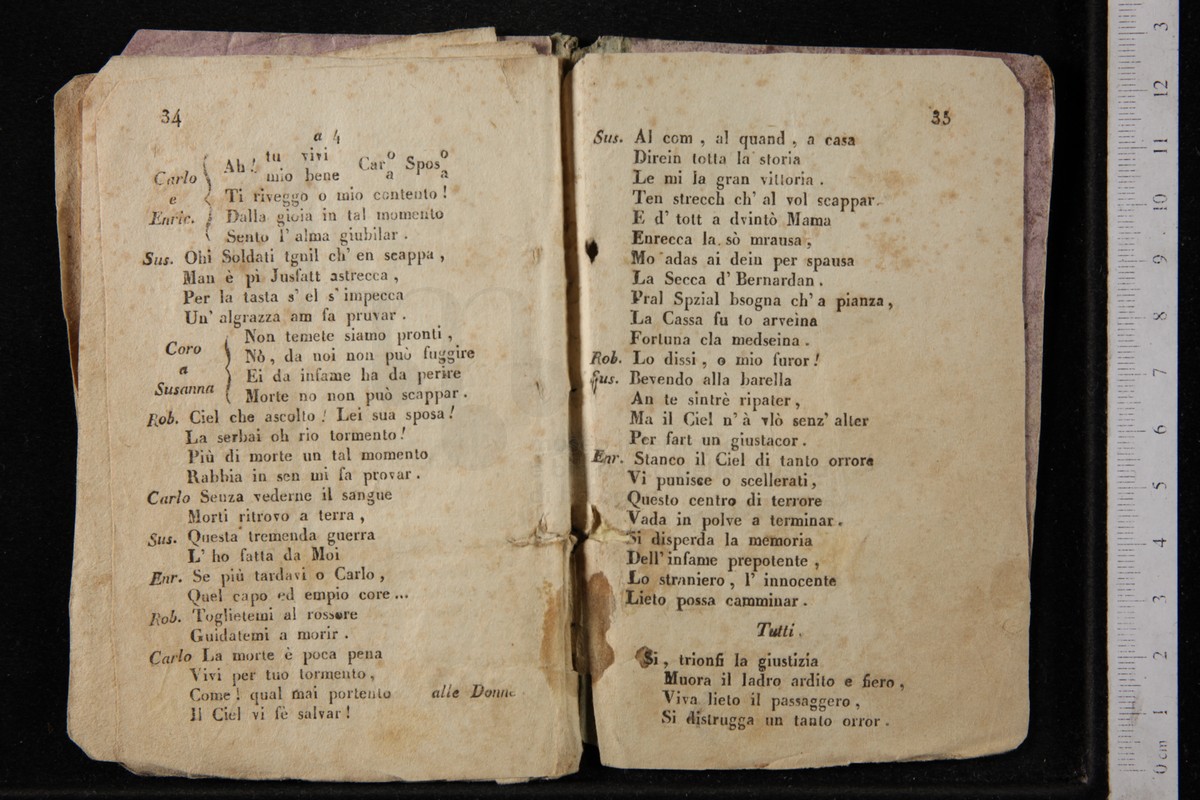 34
a 4
Carlo e Enric.
Ah! tu vivi Caro Sposo
mio bene a a
Ti riveggo o mio contento!
Dalla gioia in tal momento
Sento l' alma giubilar.
Sus. Ohi Soldati tgnil ch' en scappa,
Man è pi Jusfatt astrecca,
Per la tasta s' el s' impecca
Un' algrazza am fa pruvar.
Coro a Susanna
Non temete siamo pronti,
Nò, da noi non può fuggire
Ei da infame ha da perire
Morte no non può scappar.
Rob. Ciel che ascolto! Lei sua sposa!
La serbai oh rio tormento!
Più di morte un tal momento
Rabbia in sen mi fa provar.
Carlo Senza vederne il sangue
Morti ritrovo a terra,
Sus. Questa tremenda guerra
L' ho fatta da Moi
Enr. Se più tardavi o Carlo,
Quel capo ed empio core...
Rob. Toglietemi al rossore
Guidatemi a morir.
Carlo La morte è poca pena
Vivi per tuo tormento,
Come! qual mai portento alle Donne
Il Ciel vi fè salvar!
35
Sus. Al com, al quand, a casa
Direin totta la storia
Le mi la gran vittoria.
Ten strecch ch' al vol scappar.
E d' tott a dvintò Mama
Enrecca la sò mrausa,
Mo adas ai dein per spausa
La Secca d' Bernardan.
Pral Spzial bsogna ch' a pianza,
La Cassa fu to arveina
Fortuna cla medseina.
Rob. Lo dissi, o mio furor!
Sus. Bevendo alla barella
An te sintrè ripater,
Ma il Ciel n' à vlò senz' alter
Per fart un giustacor.
Enr. Stanco il Ciel di tanto orrore
Vi punisce o scellerati,
Questo centro di terrore
Vada in polve a terminar.
Si disperda la memoria
Dell' infame prepotente,
Lo straniero, l' innocente
Lieto possa camminar.
Tutti.
Si, trionfi la giustizia
Muora il ladro ardito e fiero,
Viva lieto il passaggero,
Si distrugga un tanto orror.
0 cm 1 2 3 4 5 6 7 8 9 10 11 12 13